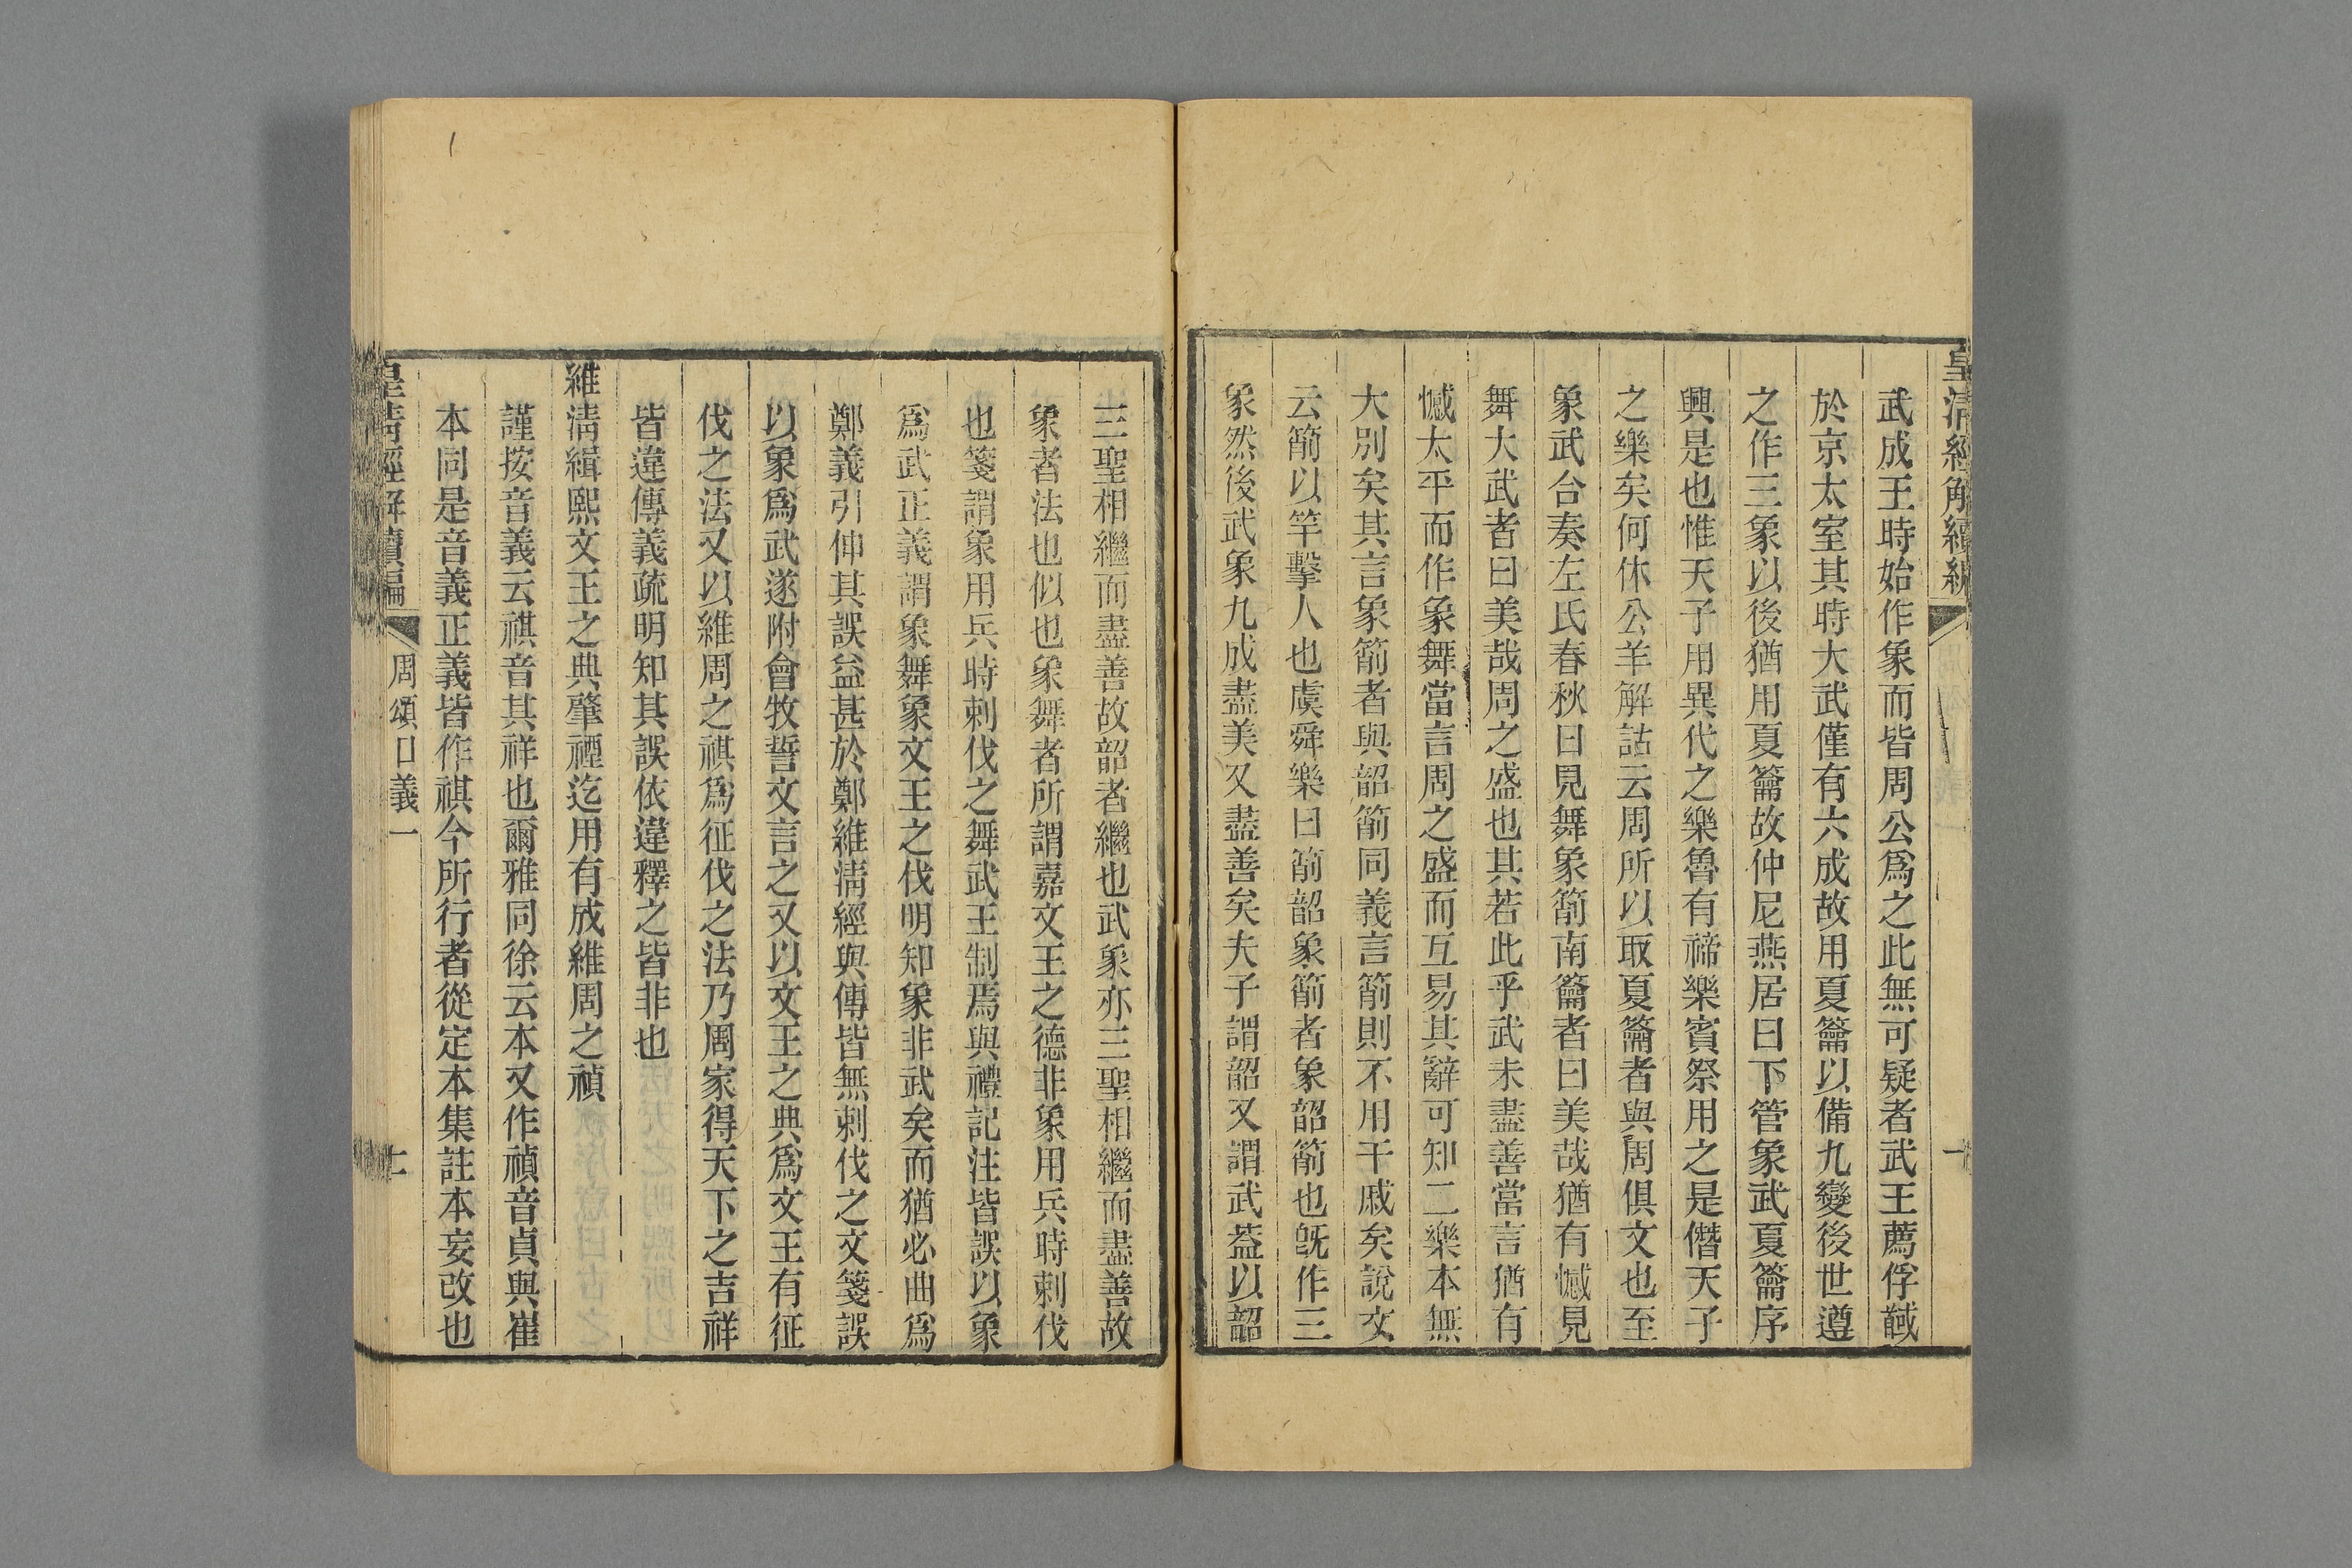 皇清經解續編
武成王時始作象而皆周公爲之此無可疑者武王薦俘馘
於京太室其時大武僅有六成故用夏籥以備九變後世遵
之作三象以後猶用夏籥故仲尼燕居曰下管象武夏籥序
興是也惟天子用異代之樂魯有禘樂賓祭用之是僭天子
之樂矣何休公羊解詁云周所以取夏籥者與周俱文也至
象武合奏左氏春秋曰見舞象箾南籥者曰美哉猶有憾見
舞大武者曰美哉周之盛也其若此乎武未盡善當言猶有
憾太平而作象舞當言周之盛而互易其辭可知二樂本無
大別矣其言象箾者與韶箾同義言箾則不用干戚矣說文
云箾以竿擊人也虞舜樂曰箾韶象箾者象韶箾也旣作三
象然後武象九成盡美又盡善矣夫子謂韶又謂武葢以韶
三聖相繼而盡善故韶者繼也武象亦三聖相繼而盡善故
象者法也似也象舞者所謂嘉文王之德非象用兵時刺伐
也箋謂象用兵時刺伐之舞武王制焉與禮記注皆誤以象
爲武正義謂象舞象文王之伐明知象非武矣而猶必曲爲
鄭義引伸其誤益甚於鄭維淸經與傳皆無刺伐之文箋誤
以象爲武遂附會牧誓文言之又以文王之典爲文王有征
伐之法又以維周之祺爲征伐之法乃周家得天下之吉祥
皆違傳義疏明知其誤依違釋之皆非也
維淸緝熙文王之典肇禋迄用有成維周之禎
謹按音義云祺音其祥也爾雅同徐云本又作禎音貞與崔
本同是音義正義皆作祺今所行者從定本集註本妄改也
皇淸經解續編
周頌口義一